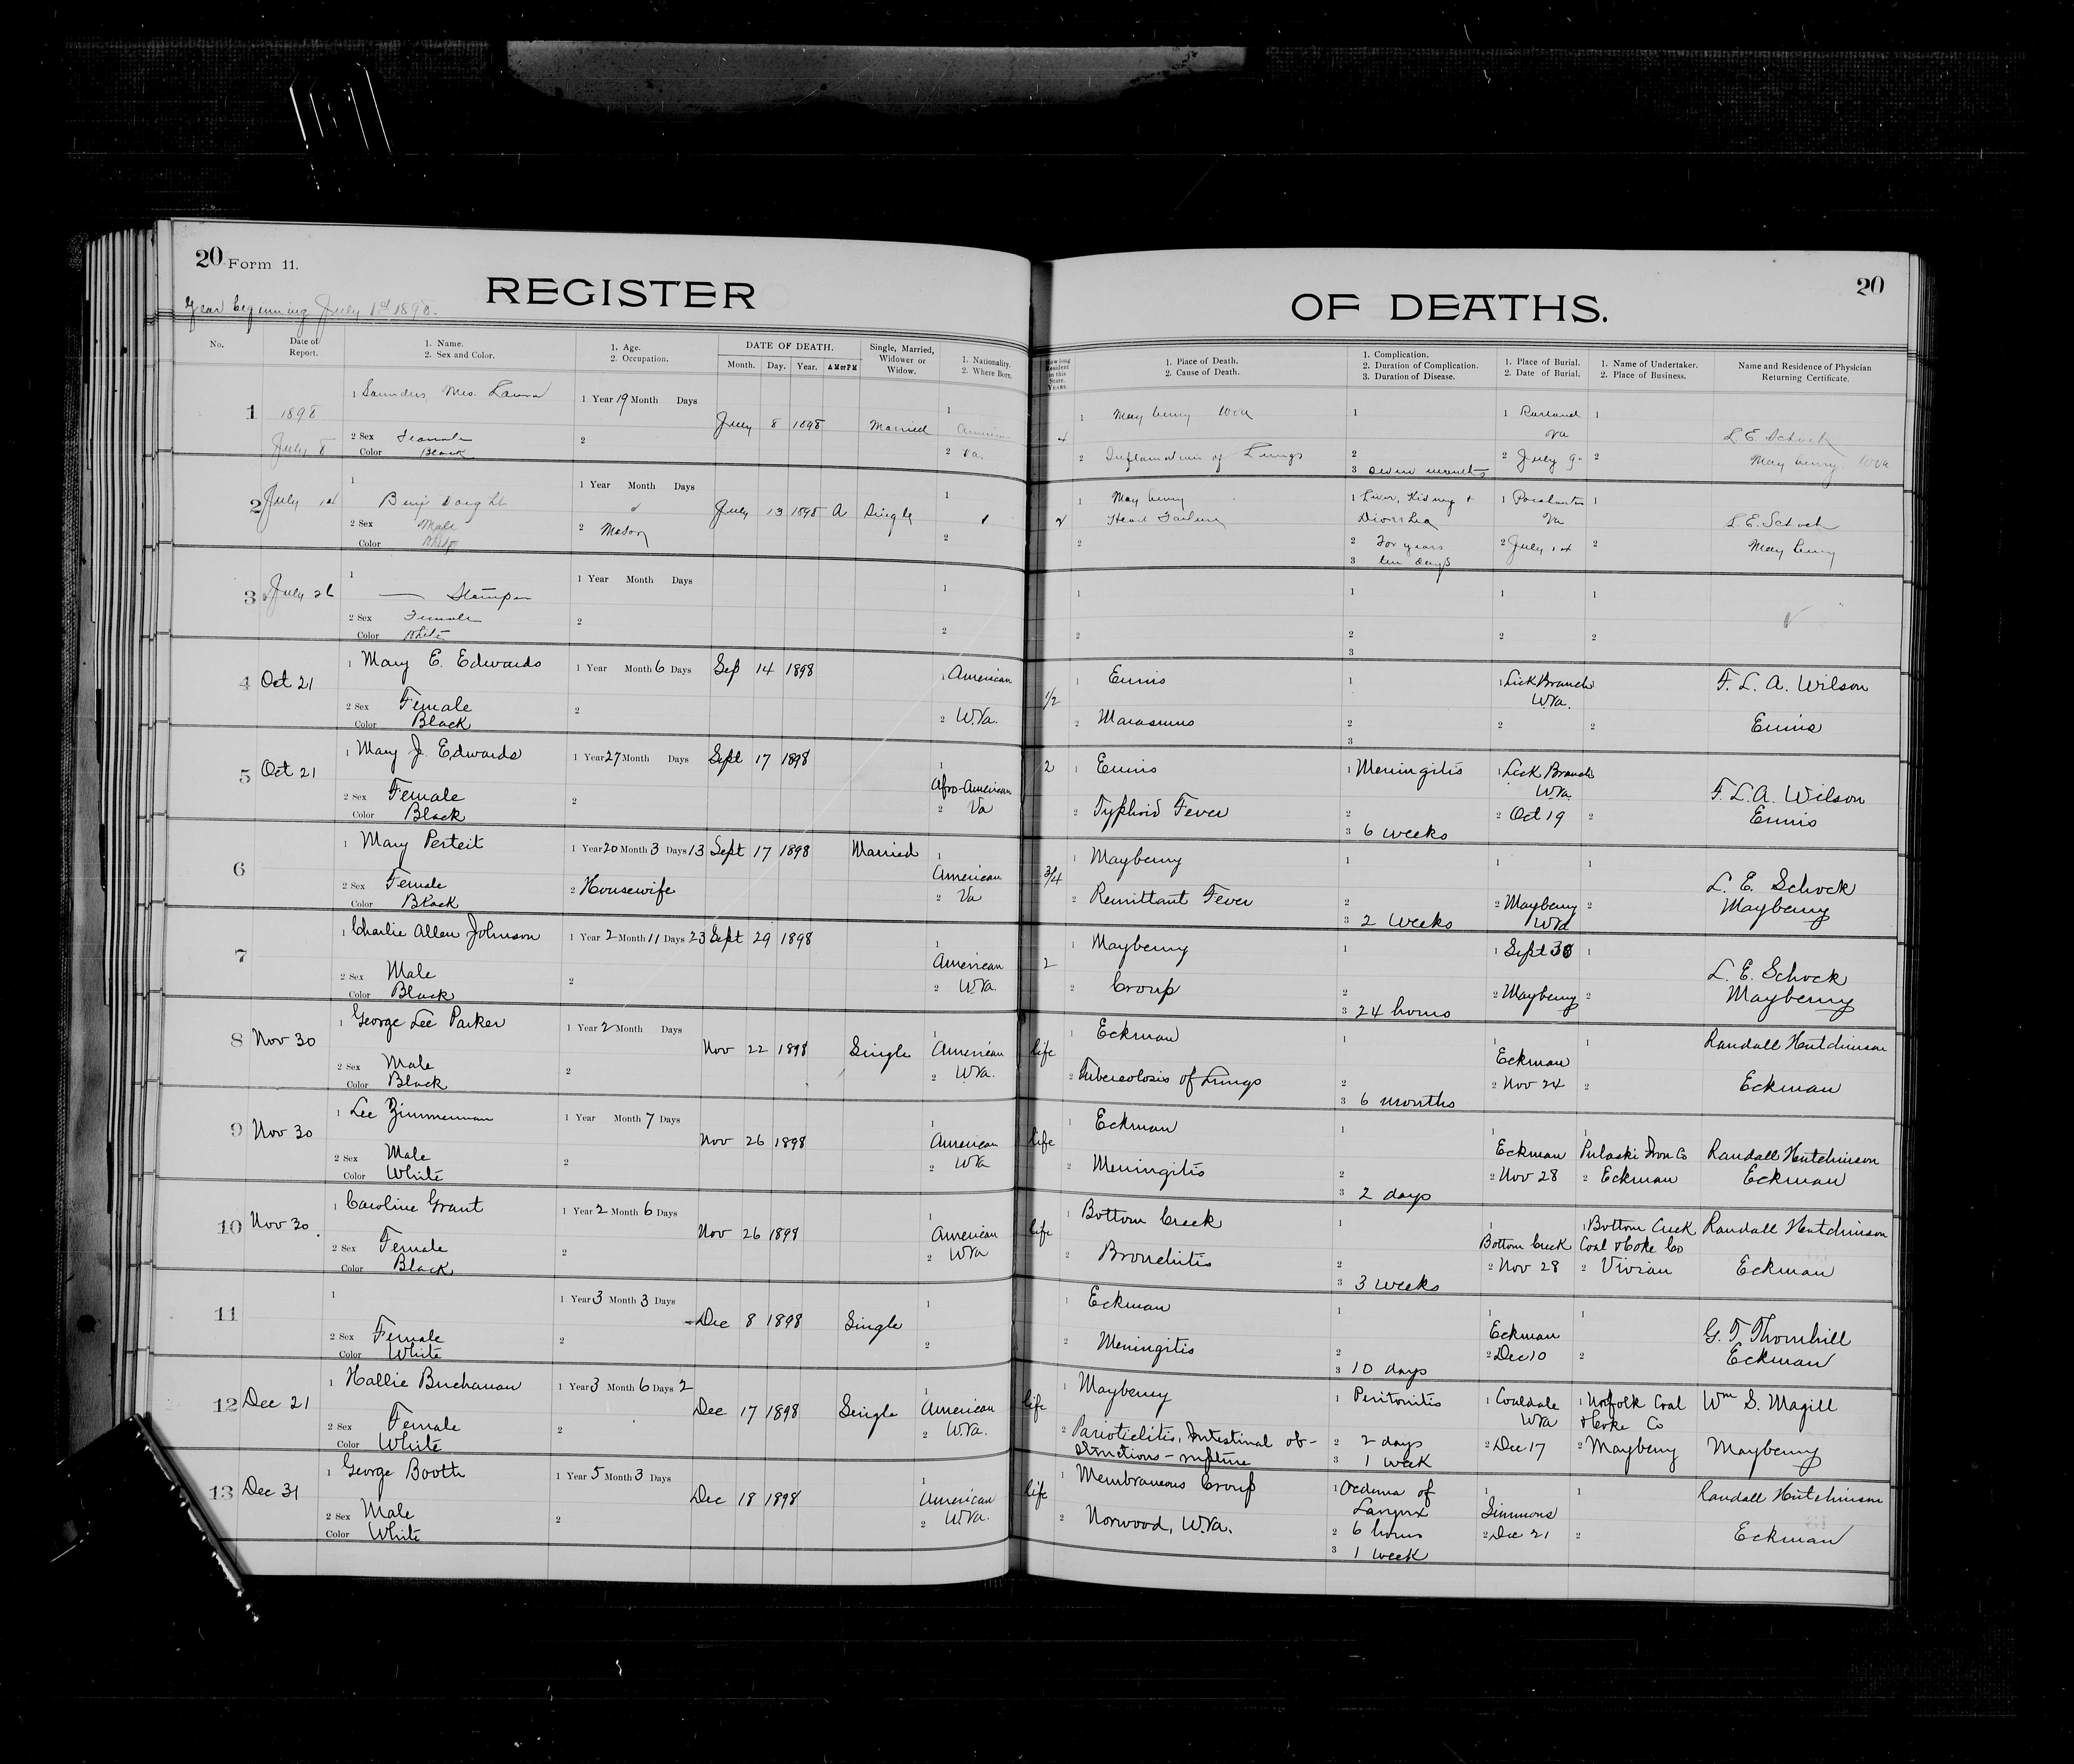 20 Form 11.
REGISTER
Year beginning July 1st 1898.
No.
Date of Report.
1. Name.
2. Sex and Color.
1. Age.
2. Occupation.
DATE OF DEATH.
Month. Day. Year. A M or P M
Single, Married, Widower or Widow.
1. Nationality.
2. Where Born.
20
OF DEATHS.
How long Resident in this State. YEARS.
1. Place of Death.
2. Cause of Death.
1. Complication.
2. Duration of Complication.
3. Duration of Disease.
1. Place of Burial.
2. Date of Burial.
1. Name of Undertaker.
2. Place of Business.
Name and Residence of Physician Returning Certificate.
1 1898 July 8
1 Saunders, Mrs. Laura
2 Sex Female
Color Black
1 Year 19 Month Days
2
July 8 1898 Married
1 American
2 Va.
4
1 Mayberry WVa
2 Inflamation of Lungs
1
2
3 seven months
1 Va
2 July 9
1
2
L. E. Schock
Mayberry WVa
2 July 14
1 Benj
2 Sex Male
Color White
1 Year Month Days
2 Mason
July 13 1898 A Single
1
2
1 Mayberry
Heart Failure
2
1 Liver, Kidney +
Diorrhea
2 For years
3 ten days
1 Pocahontas
Va
2 July 14
1
2
L. E. Schock
Mayberry
3 July 26
1 — Stamper
2 Sex Female
Color White
1 Year Month Days
2
1
2
1
2
1
2
3
1
2
1
2
4 Oct 21
1 Mary E. Edwards
2 Sex Female
Color Black
1 Year Month 6 Days
2
Sep 14 1898
1 American
2 W.Va.
1/2
1 Ennis
2 Marasmus
1
2
3
1 Lick Branch
W.Va.
2
2
F. L. A. Wilson
Ennis
5 Oct 21
1 Mary J. Edwards
2 Sex Female
Color Black
1 Year 27 Month Days
2
Sept 17 1898
1 Afro-American
2 Va
2
1 Ennis
2 Typhoid Fever
1 Meningitis
2
3 6 weeks
1 Lick Branch
W.Va.
2 Oct 19
2
F. L. A. Wilson
Ennis
6
1 Mary Perteit
2 Sex Female
Color Black
1 Year 20 Month 3 Days 13
2 Housewife
Sept 17 1898 Married
1 American
2 Va
3/4
1 Mayberry
2 Remittant Fever
1
2
3 2 weeks
1
2 Mayberry
WVa
1
2
L. E. Schock
Mayberry
7
1 Charlie Allen Johnson
2 Sex Male
Color Black
1 Year 2 Month 11 Days 23
2
Sept 29 1898
1 American
2 W.Va.
2
1 Mayberry
2 Croup
1
2
3 24 hours
1 Sept 30
2 Mayberry
1
2
L. E. Schock
Mayberry
8 Nov 30
1 George Lee Parker
2 Sex Male
Color Black
1 Year 2 Month Days
2
Nov 22 1898 Single
1 American
2 W.Va.
life
1 Eckman
2 Tuberculosis of Lungs
1
2
3 6 months
1 Eckman
2 Nov 24
1
2
Randall Hutchinson
Eckman
9 Nov 30
1 Lee Zimmerman
2 Sex Male
Color White
1 Year Month 7 Days
2
Nov 26 1898
1 American
2 WVa
life
1 Eckman
2 Meningitis
1
2
3 2 days
1 Eckman
2 Nov 28
1 Pulaski Iron Co
2 Eckman
Randall Hutchinson
Eckman
10 Nov 30.
1 Caroline Grant
2 Sex Female
Color Black
1 Year 2 Month 6 Days
2
Nov 26 1898
1 American
2 WVa
life
1 Bottom Creek
2 Bronchitis
1
2
3 3 weeks
1 Bottom Creek
2 Nov 28
1 Bottom Creek
Coal & Coke Co
2 Vivian
Randall Hutchinson
Eckman
11
1
2 Sex Female
Color White
1 Year 3 Month 3 Days
2
Dec 8 1898 Single
1
2
1 Eckman
2 Meningitis
1
2
3 10 days
1 Eckman
2 Dec 10
1
2
G. T. Thornhill
Eckman
12 Dec 21
1 Hallie Buchanan
2 Sex Female
Color White
1 Year 3 Month 6 Days 2
2
Dec 17 1898 Single
1 American
2 W.Va.
life
1 Mayberry
2 Intestinal ob-
structions - rupture
1 Peritonitis
2 2 days
3 1 week
1 Coaldale
WVa
2 Dec 17
1 Norfolk Coal
& Coke Co
2 Mayberry
Wm S. Magill
Mayberry
13 Dec 31
1 George Booth
2 Sex Male
Color White
1 Year 5 Month 3 Days
2
Dec 18 1898
1 American
2 W.Va.
life
1 Membraneous Croup
2 Norwood, W.Va.
1 Oedema of
Larynx
2 6 hours
3 1 week
1 Simmons
2 Dec 21
1
2
Randall Hutchinson
Eckman